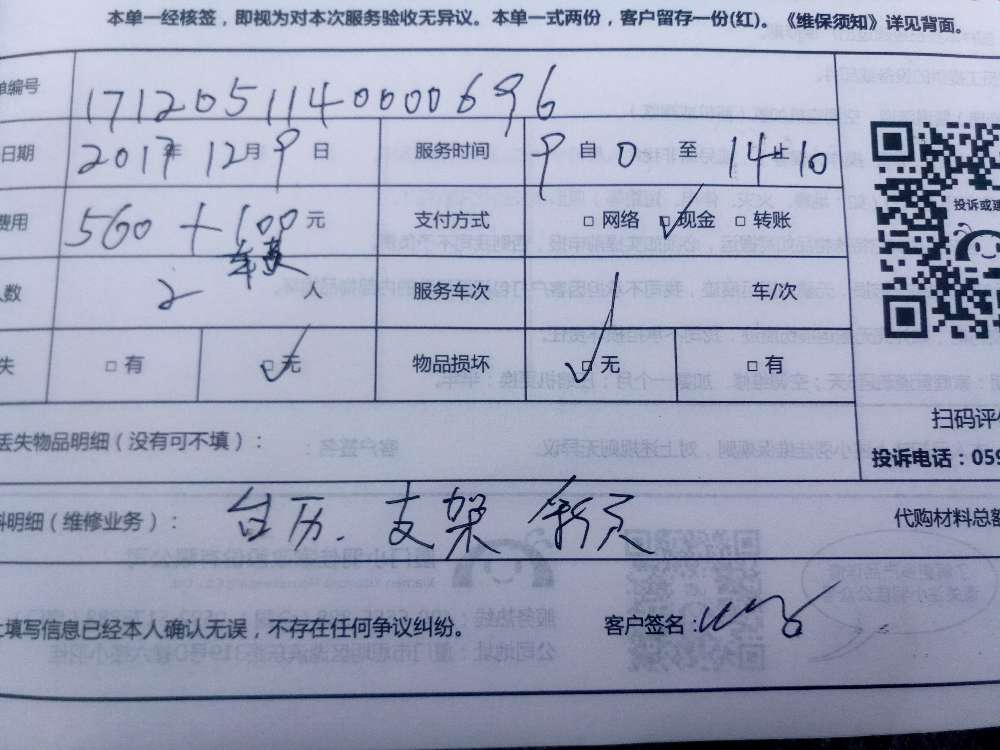 本单一经核签，即视为对本次服务验收无异议。本单一式两份，客户留存一份(红)。《维保须知》详见背面。
单编号 1712051140000696
日期 2017年 12月 9日 服务时间 9 自 0 至 14 止 10
费用 560 + 100元 支付方式 □ 网络 ☑ 现金 □ 转账
车费
人数 2 人 服务车次 1 车/次
失 □ 有 ☑ 无 物品损坏 ☑ 无 □ 有
投诉或建
扫码评价
丢失物品明细（没有可不填）：
投诉电话：059
料明细（维修业务）： 台历、支架 代购材料总额
上填写信息已经本人确认无误，不存在任何争议纠纷。 客户签名：